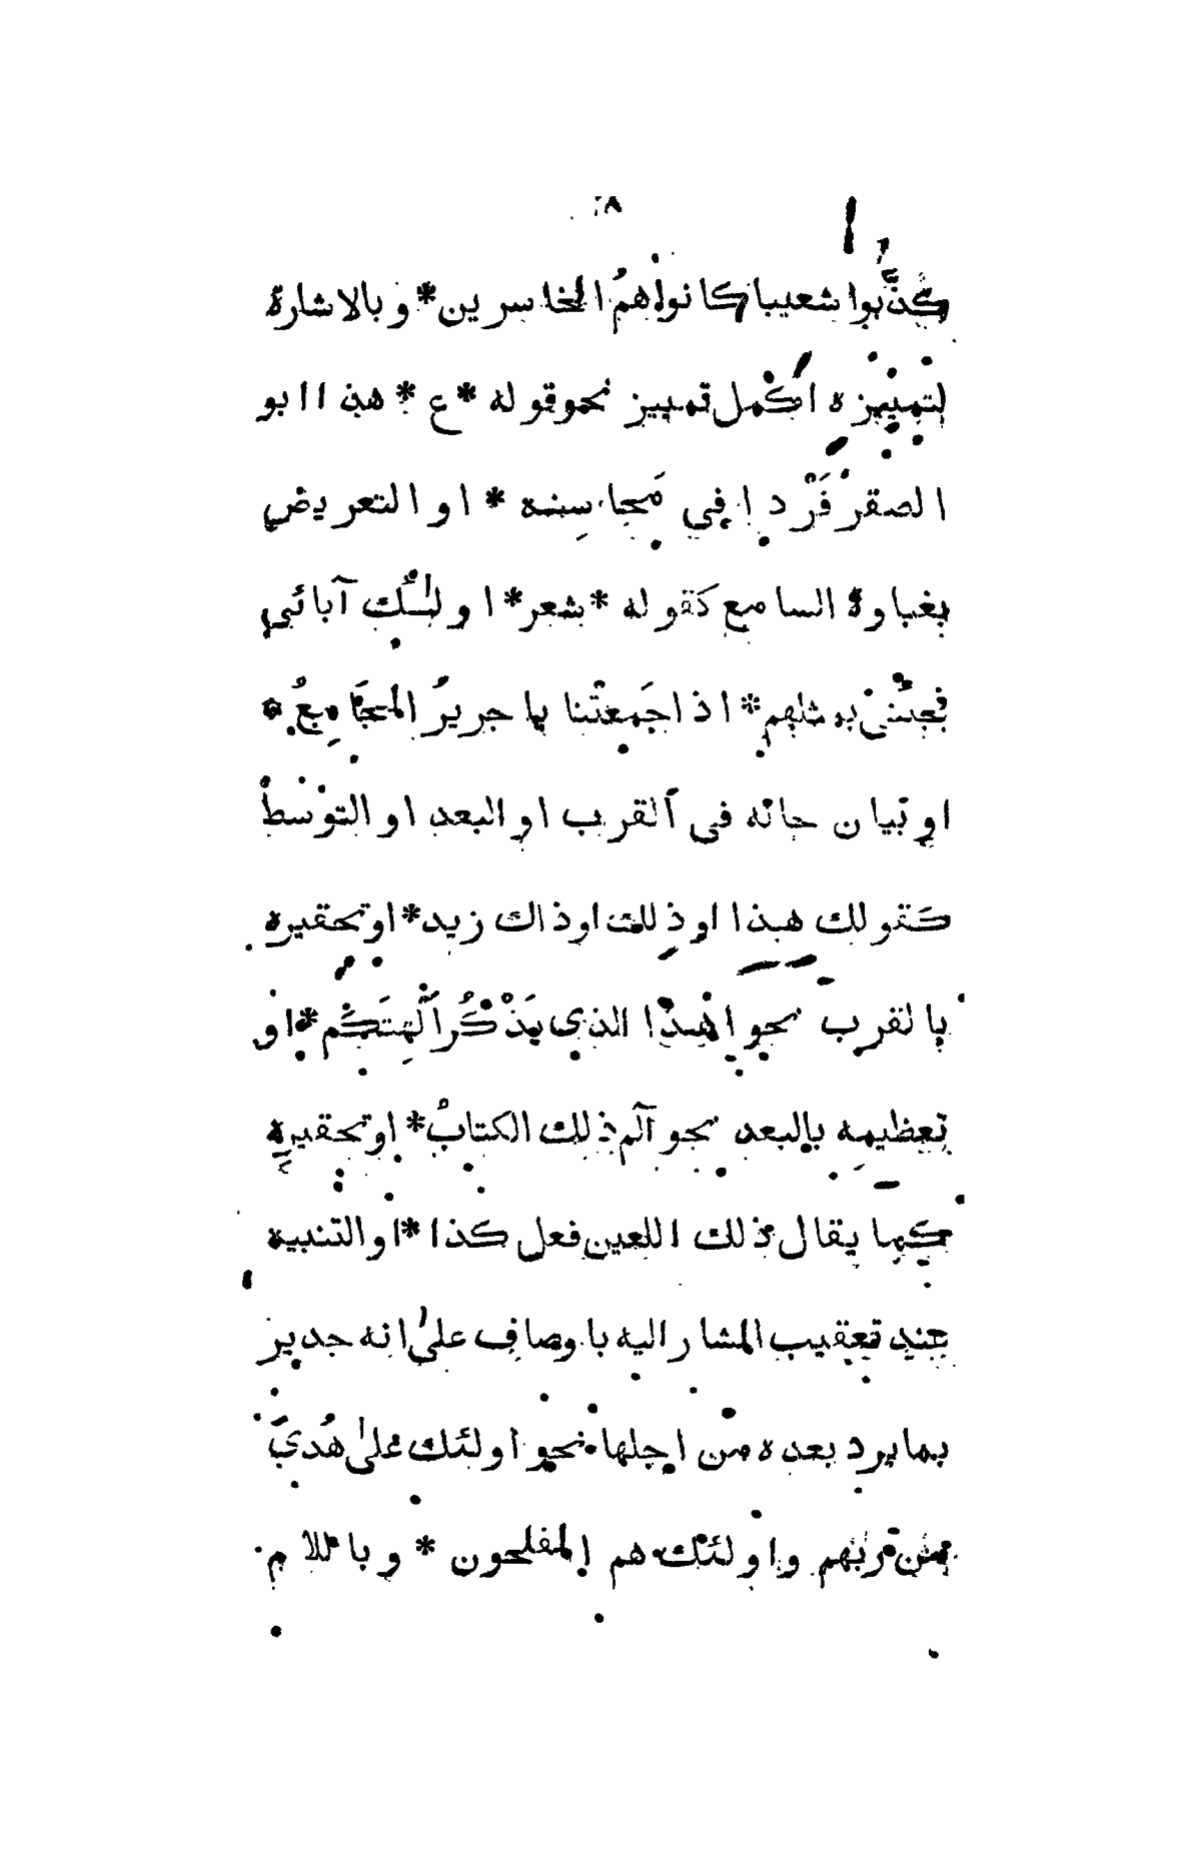 كذَّبوا شعيبا كانوا همُ الخاسرين * وبالاشارة
لتمييزه اكمل تمييز نحو قوله * ع * هذا ابو
الصقر فَرْدا في مَحاسِنه * او التعريض
بغباوة السامع كقوله * شعر * اولٰئك آبائي
فجئني بمثلهم * اذا جَمعتْنا يا جريرُ المجَامِعُ *
او بيان حاله في القرب او البعد او التوسط
كقولك هذا او ذلك او ذاك زيد * او تحقيره
بالقرب نحو اهذا الذي يَذْكُر آلِهتَكُم * او
تعظيمه بالبعد نحو آلم ذلك الكتابُ * او تحقيره
كما يقال ذلك اللعين فعل كذا * او التنبيه
عند تعقيب المشار اليه باوصاف علىٰ انه جدير
بما يرد بعده من اجلها نحو اولئك علىٰ هُدىً
من ربهم واولئك هم المفلحون * وباللام